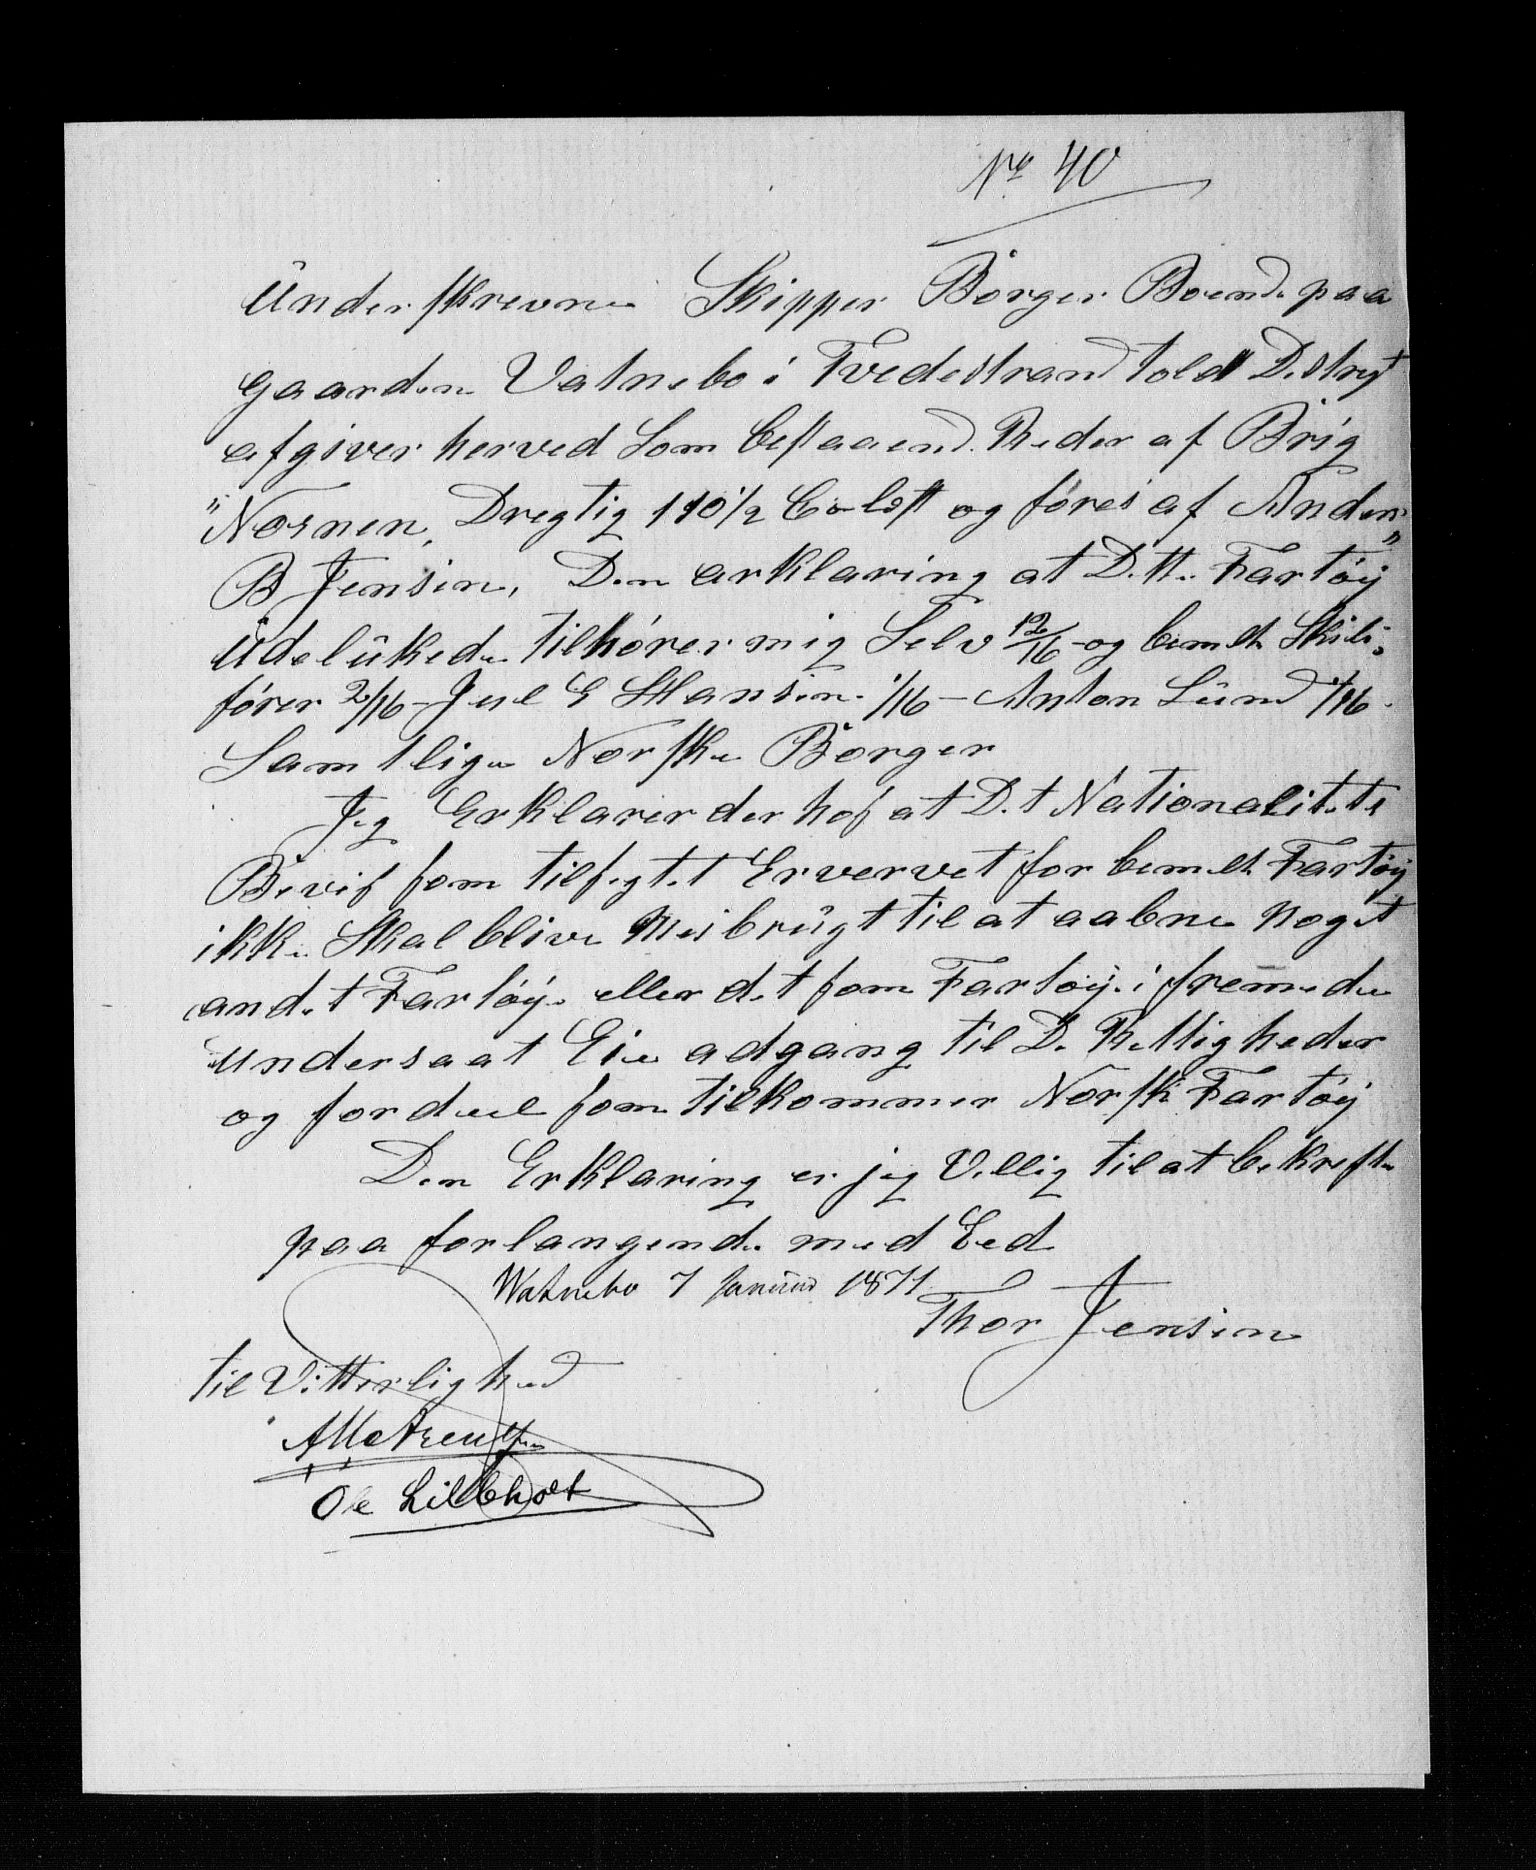 No 40
Underskrevne Skipper Borger Boende paa
Gaarden Vatnebo i Tvedestrand told Destryt
afgiver herved Som bestaaende Reder af Brig
"Nornen, Dregtig 110 1/2 Colest og føres af Anders"
B Jensen, Den arklaring at Dette Fartøy
Udelukede tilhører mig Selv 12/16 og bemelte Skibs:
fører 2/16 - Juel G Hansen 1/16 - Anton Lund 1/16
Samtlige Norske Borger
Jeg Erklarer derhos at Det Nationalitets
Bevis som tilsegtet Ervervet for bemelte Fartøy
ikke Skal blive Misbrugt til at aabne noget
andet Fartøye eller det som Fartøye i fremede
undersaat Eie adgang til De Rettigheder
og fordeel som tilkommer Norske Fartøy
Den Erklaring er jeg Vellig til at bekrefte
paa forlangende med Eed
Watnebo 7 Januar 1871
Thor Jensen
til Vitterlighed
Ole Lilleholt